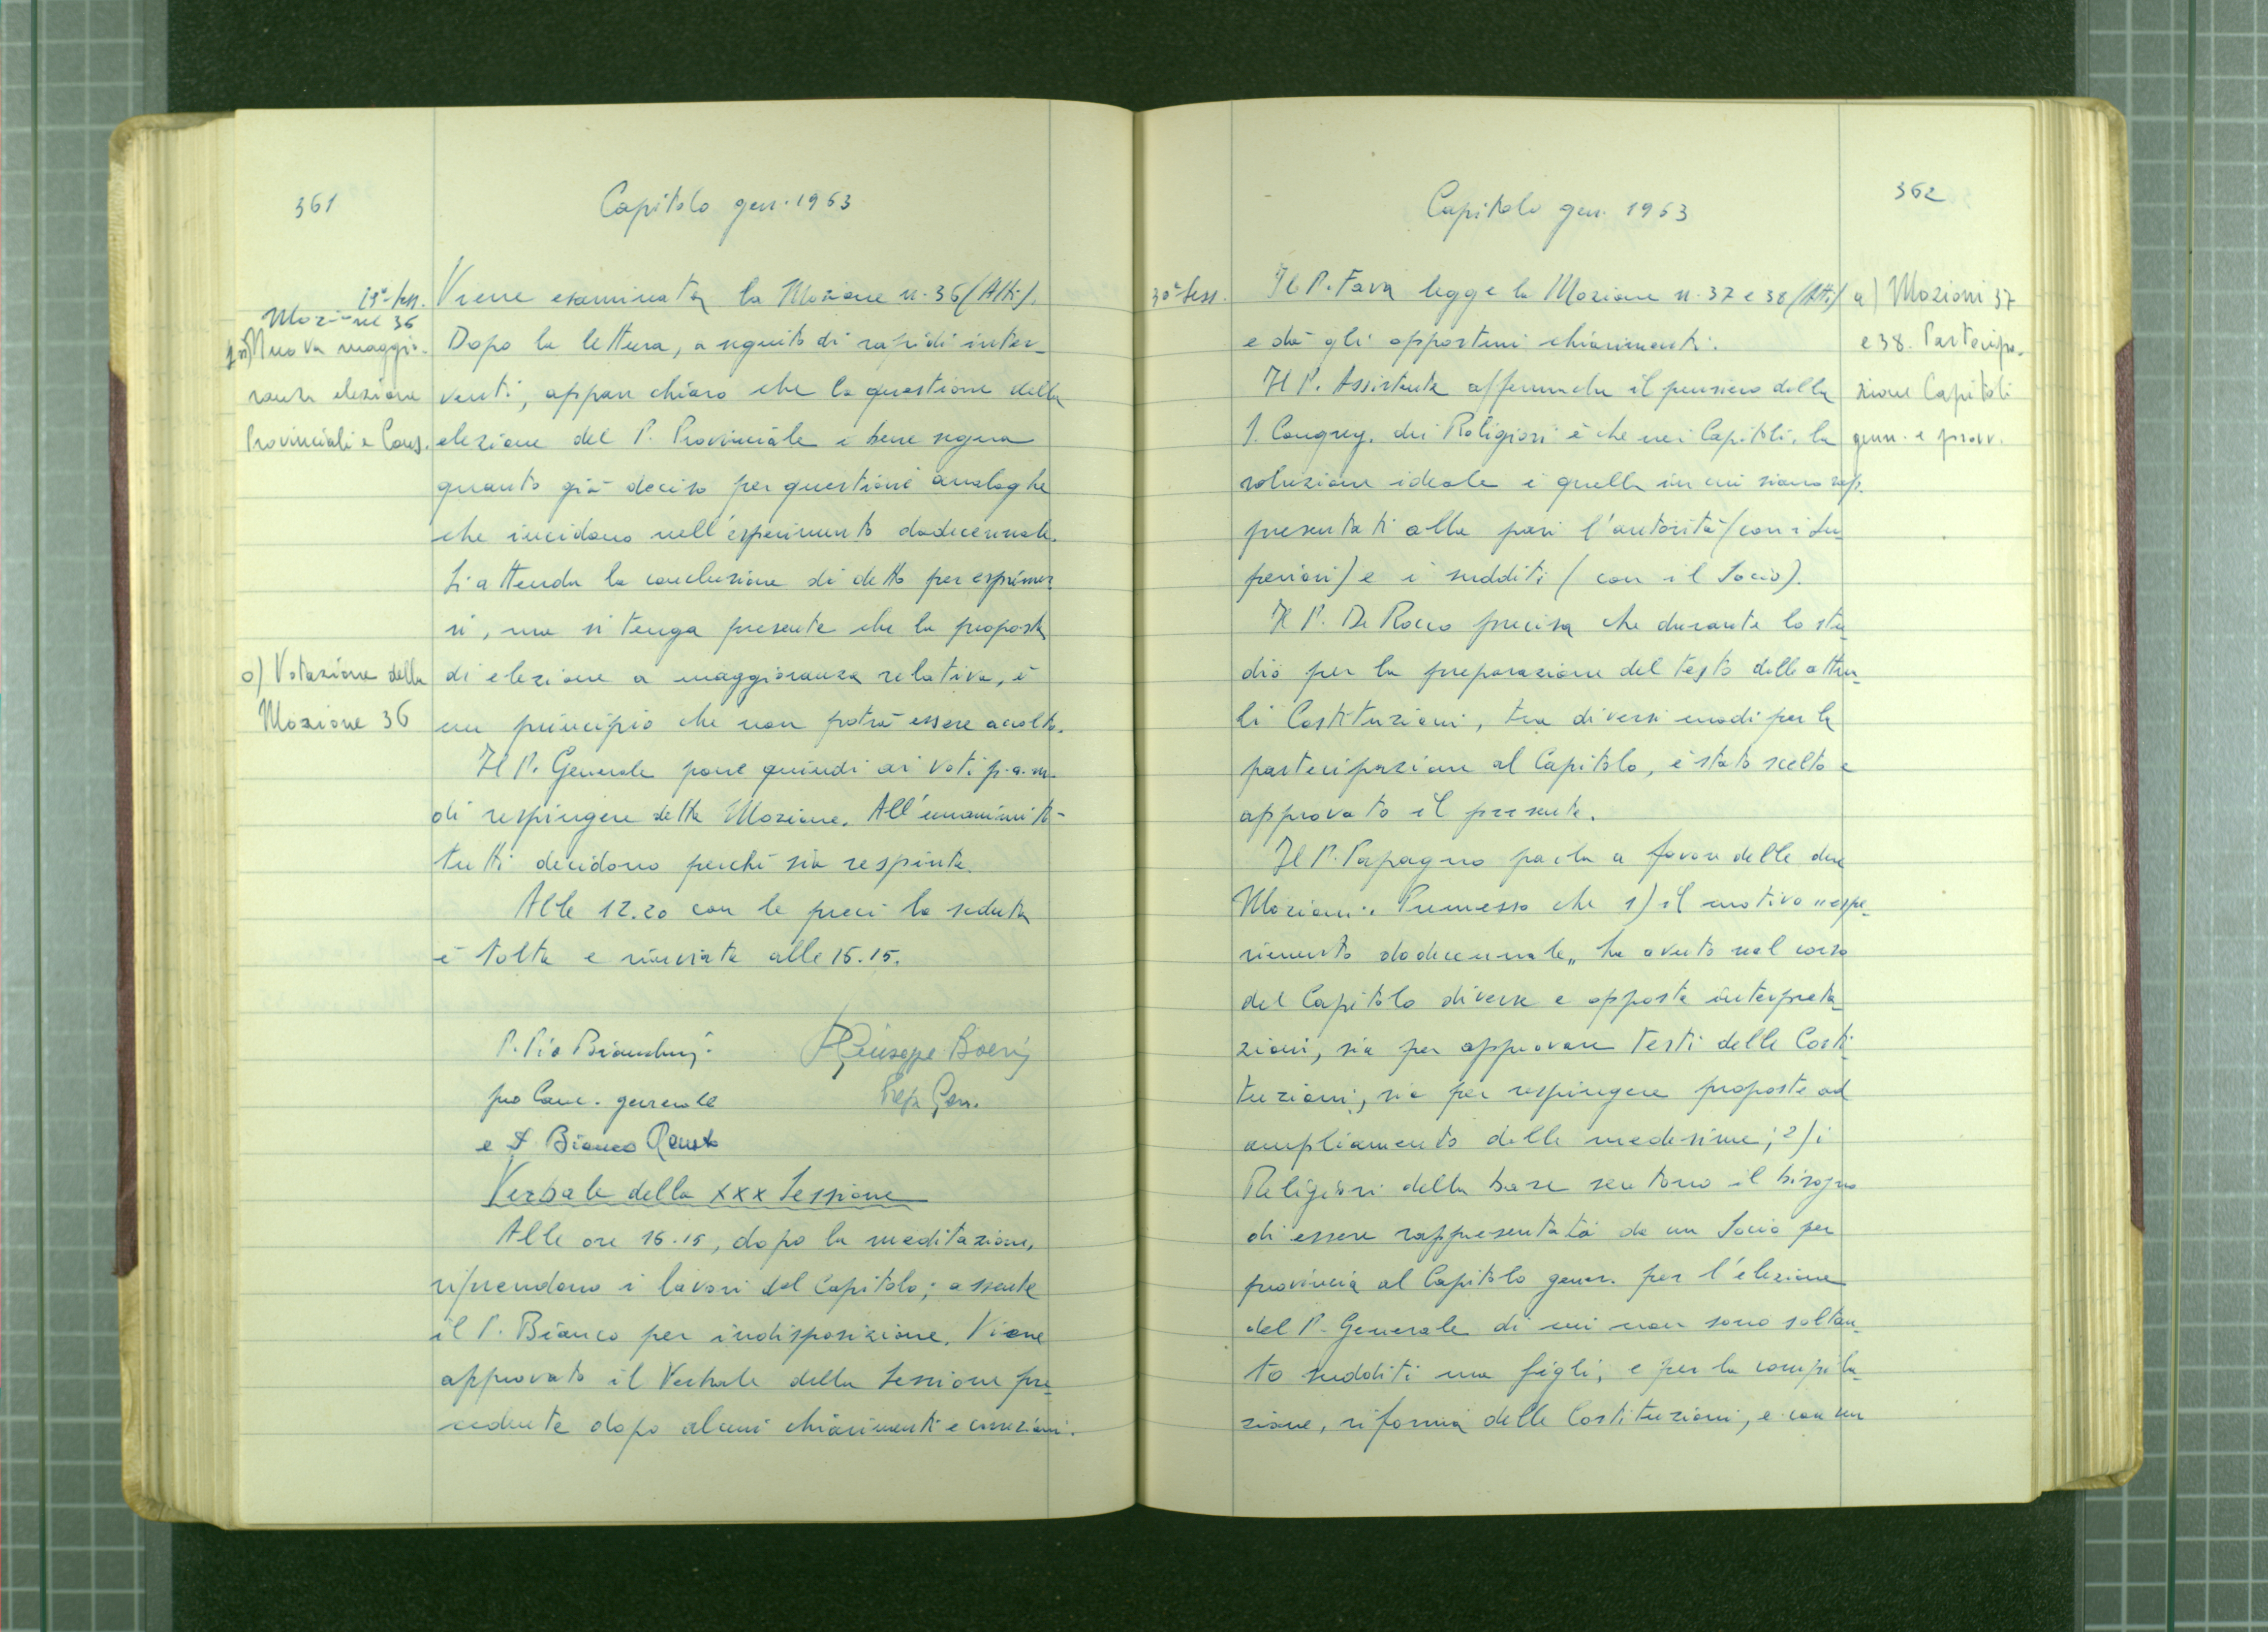 361
Capitolo gen. 1963
29ª Sess.
Mozione 36
n) Nuova maggio-
ranza elezione
Provinciali e Cons.
Viene esaminata la Mozione n. 36 (Atti).
Dopo la lettura, a seguito di rapidi inter-
venti, appare chiaro che la questione della
elezione del P. Provinciale è bene segua
quanto già deciso per questioni analoghe
che incidono nell'esperimento dodecennale.
Si attenda la conclusione di detto per esprimer
si, ma si tenga presente che la proposta
o) Votazione della
Mozione 36
di elezione a maggioranza relativa, è
un principio che non potrà essere accolto.
Il P. Generale pone quindi ai voti p.a.m.
di respingere detta Mozione. All'unanimità
tutti decidono perché sia respinta.
Alle 12.20 con le preci la seduta
è tolta e rinviata alle 15.15.
P. Pio Bianchini
pro Canc. generale
e P. Bianco Renato
P. Giuseppe Boeris
Prep. Gen.
Verbale della XXX Sessione
Alle ore 15.15, dopo la meditazione,
riprendono i lavori del Capitolo; assente
il P. Bianco per indisposizione. Viene
approvato il Verbale della Sessione pre-
cedente dopo alcuni chiarimenti e correzioni.
362
Capitolo gen. 1963
30ª Sess.
a) Mozioni 37
e 38. Partecipa-
zione Capitoli
gen. e prov.
Il P. Fava legge la Mozione n. 37 e 38 (Atti)
e dà gli opportuni chiarimenti.
Il P. Assistente afferma che il pensiero della
S. Congreg. dei Religiosi è che nei Capitoli, la
soluzione ideale è quella in cui siano rap-
presentati alla pari l'autorità (con i Su-
periori) e i sudditi (con il Socio).
Il P. De Rocco precisa che durante lo stu-
dio per la preparazione del testo delle attua-
li Costituzioni, tra diversi modi per la
partecipazione al Capitolo, è stato scelto e
approvato il presente.
Il P. Papagno parla a favore delle due
Mozioni. Premesso che 1) il motivo "espe-
rimento dodecennale" ha avuto nel corso
del Capitolo diverse e opposte interpreta-
zioni, sia per approvare testi delle Costi-
tuzioni, sia per respingere proposte ad
ampliamento delle medesime; 2) i
Religiosi della base sentono il bisogno
di essere rappresentati da un Socio per
provincia al Capitolo gener. per l'elezione
del P. Generale di cui non sono soltan-
to sudditi ma figli; e per la compila-
zione, riforma delle Costituzioni, e con un